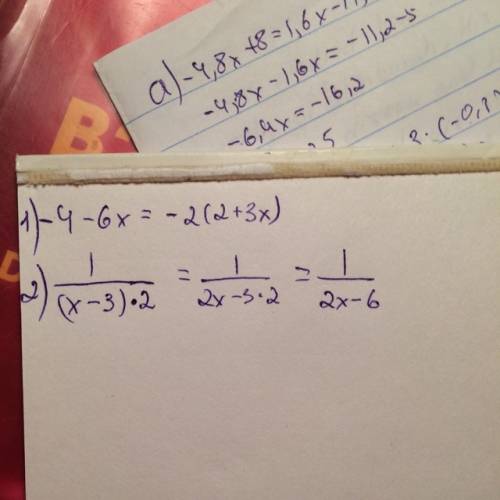 а) -4,8x+8=1,6x-11,
-4,8x-1,6x=-11,2-5
-6,4x=-16,2
1) -4-6x=-2(2+3x)
2) 1/((x-3)·2) = 1/(2x-3·2) = 1/(2x-6)